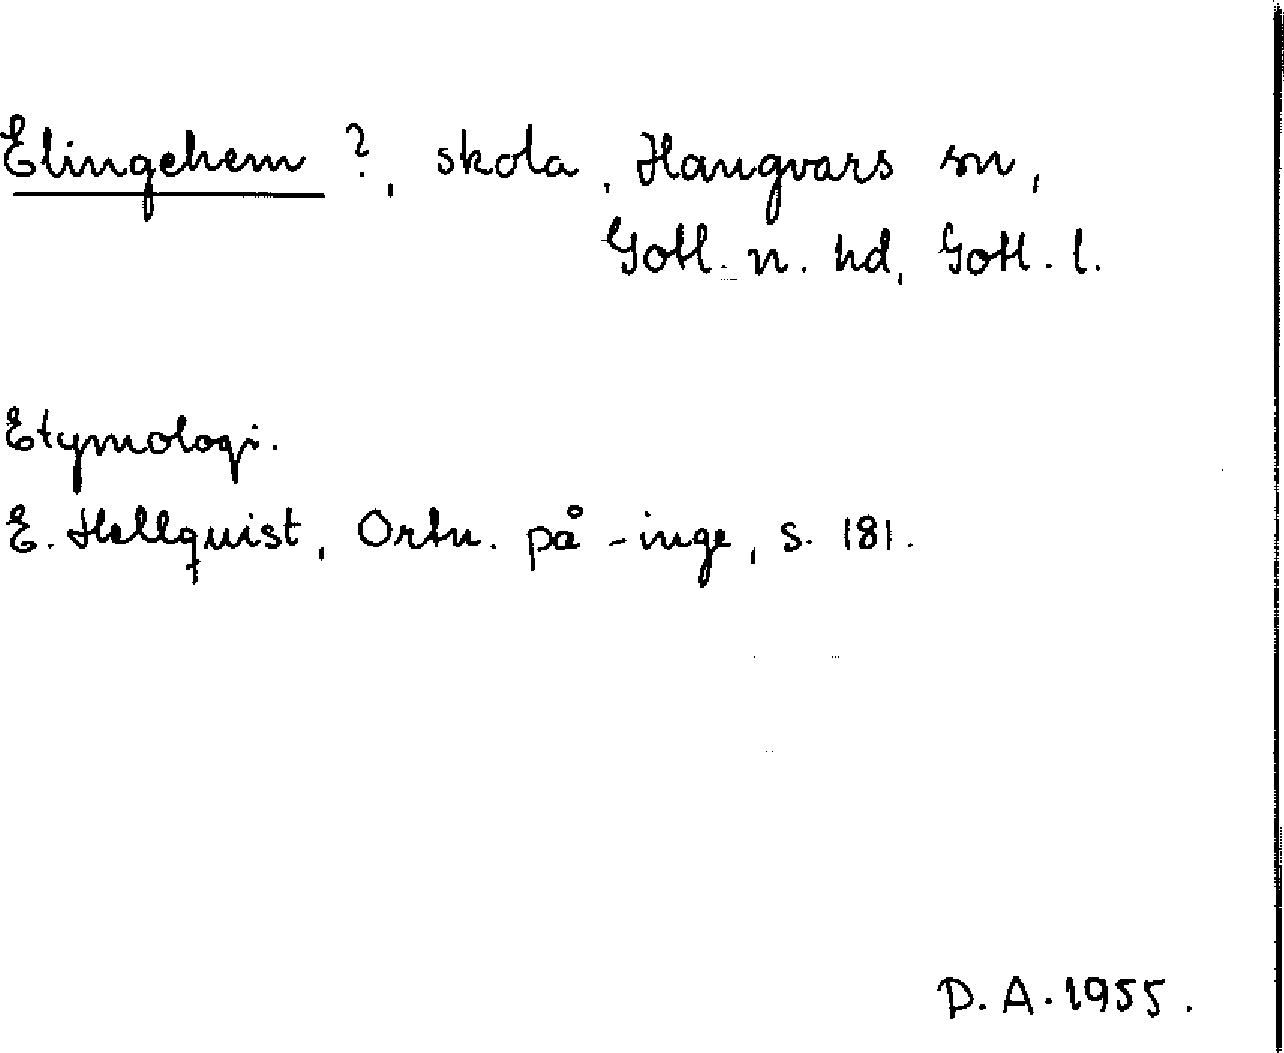 Elingehem ?, skola, Hangvars sn,
Gotl. n. hd, Gotl. l.
Etymologi.
E. Hellquist, Ortn. på -inge, s. 181.
D. A. 1955.